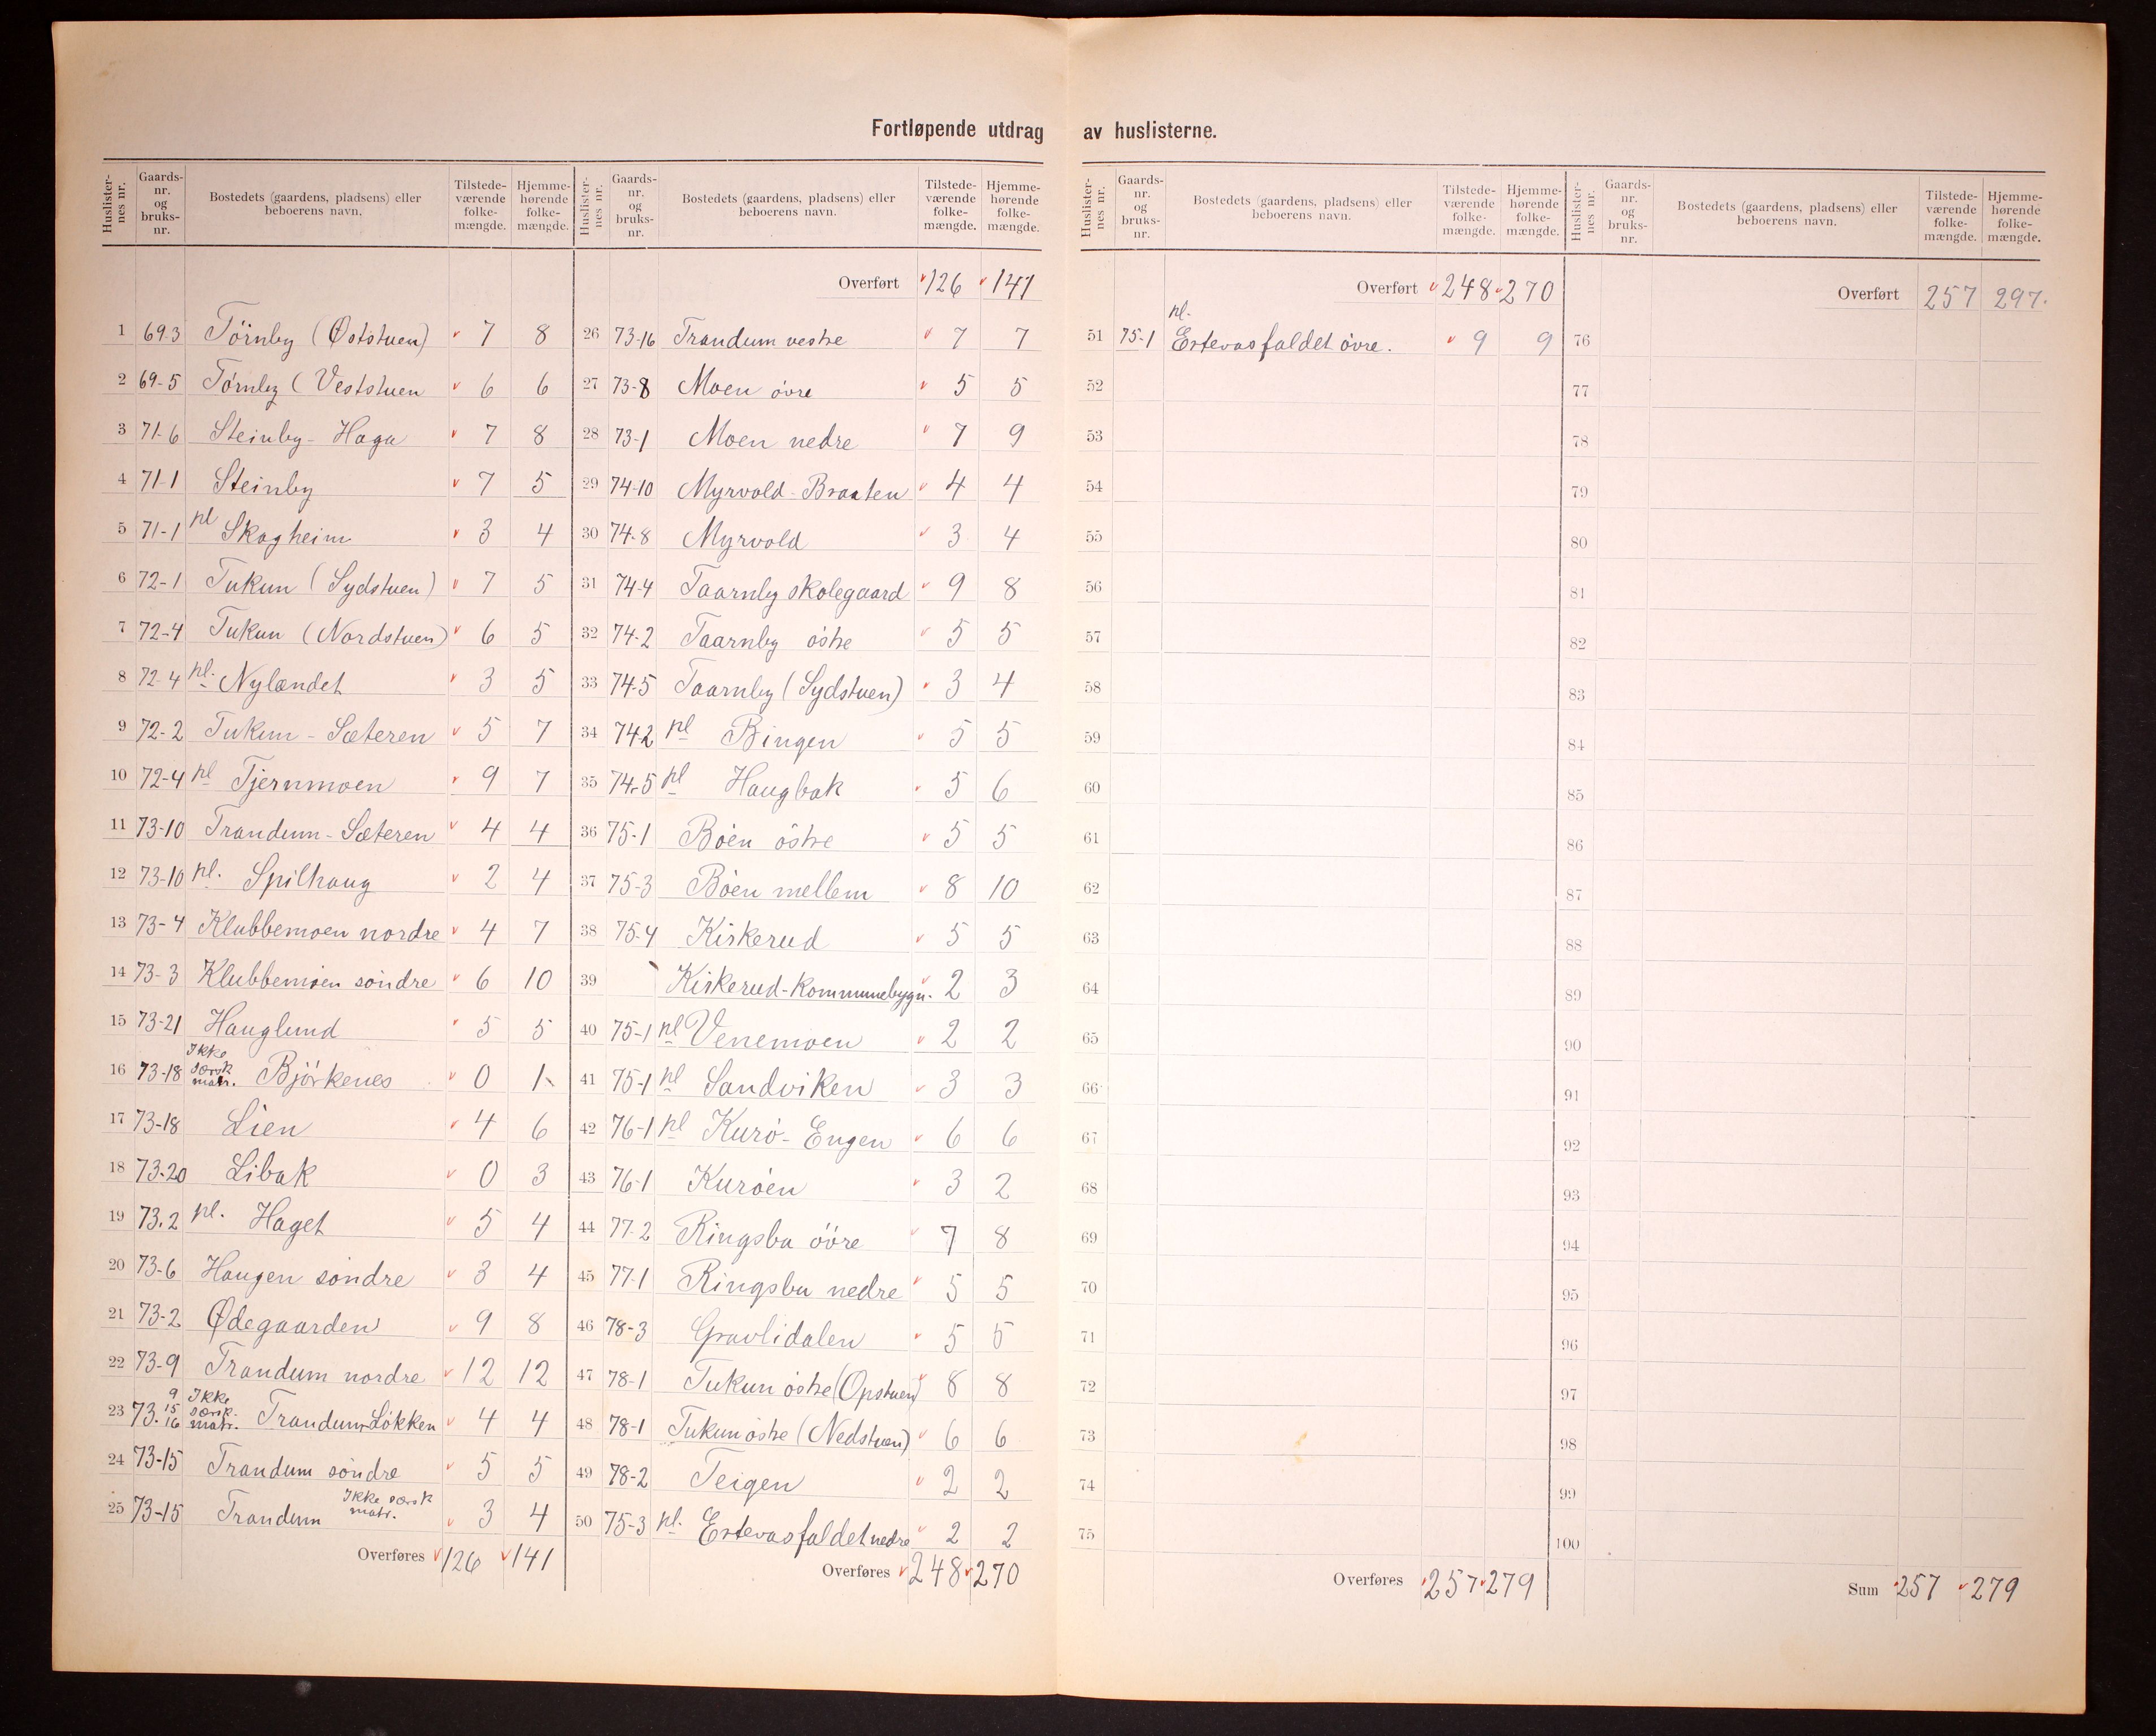 Fortløpende utdrag av huslisterne.
Huslister-nes nr. | Gaards-nr. og bruks-nr. | Bostedets (gaardens, pladsens) eller beboerens navn. | Tilstede-værende folke-mængde. | Hjemme-hørende folke-mængde.
1 69.3 Törnby (Øststuen) 7 8
2 69-5 Törnby (Veststuen 6 6
3 71-6 Steinby-Haga 7 8
4 71-1 Steinby 7 5
5 71-1 pl Skogheim 3 4
6 72-1 Tukun (Sydstuen) 7 5
7 72-4 Tukun (Nordstuen) 6 5
8 72-4 pl. Nylandet 3 5
9 72-2 Tukun-Sæteren 5 7
10 72-4 pl Tjernmoen 9 7
11 73-10 Trandum-Sæteren 4 4
12 73-10 pl. Spilhaug 2 4
13 73-4 Klubbemoen nordre 4 7
14 73-3 Klubbemoen söndre 6 10
15 73-21 Hauglund 5 5
16 73-18 Ikke særsk matr. Björkenes 0 1
17 73-18 Lien 4 6
18 73-20 Libak 0 3
19 73.2 pl. Haget 5 4
20 73-6 Haugen söndre 3 4
21 73-2 Ødegaarden 9 8
22 73-9 Trandum nordre 12 12
23 73. 9 15 16 Ikke særsk. matr. Trandum-Lökken 4 4
24 73-15 Trandum söndre 5 5
25 73-15 Trandum Ikke særsk matr. 3 4
Overføres 126 141
Huslister-nes nr. | Gaards-nr. og bruks-nr. | Bostedets (gaardens, pladsens) eller beboerens navn. | Tilstede-værende folke-mængde. | Hjemme-hørende folke-mængde.
Overført 126 141
26 73-16 Trandum vestre 7 7
27 73-8 Moen övre 5 5
28 73-1 Moen nedre 7 9
29 74-10 Myrvold-Braaten 4 4
30 74-8 Myrvold 3 4
31 74-4 Taarnby skolegaard 9 8
32 74-2 Taarnby östre 5 5
33 74-5 Taarnby (Sydstuen) 3 4
34 74-2 pl Bingen 5 5
35 74-5 pl Haugbak 5 6
36 75-1 Böen östre 5 5
37 75-3 Böen mellem 8 10
38 75-4 Kiskerud 5 5
39 Kiskerud-kommunebygn. 2 3
40 75-1 pl Venemoen 2 2
41 75-1 pl Sandviken 3 3
42 76-1 pl Kurö-Engen 6 6
43 76-1 Kuröen 3 2
44 77-2 Ringsbu övre 7 8
45 77-1 Ringsbu nedre 5 5
46 78-3 Gravlidalen 5 5
47 78-1 Tukun östre (Opstuen) 8 8
48 78-1 Tukun östre (Nedstuen) 6 6
49 78-2 Teigen 2 2
50 75-3 pl. Estevasfaldet nedre 2 2
Overføres 248 270
Huslister-nes nr. | Gaards-nr. og bruks-nr. | Bostedets (gaardens, pladsens) eller beboerens navn. | Tilstede-værende folke-mængde. | Hjemme-hørende folke-mængde.
Overført 248 270
51 75-1 pl. Estevasfaldet övre. 9 9
52
53
54
55
56
57
58
59
60
61
62
63
64
65
66
67
68
69
70
71
72
73
74
75
Overføres 257 279
Huslister-nes nr. | Gaards-nr. og bruks-nr. | Bostedets (gaardens, pladsens) eller beboerens navn. | Tilstede-værende folke-mængde. | Hjemme-hørende folke-mængde.
Overført 257 297.
76
77
78
79
80
81
82
83
84
85
86
87
88
89
90
91
92
93
94
95
96
97
98
99
100
Sum 257 279